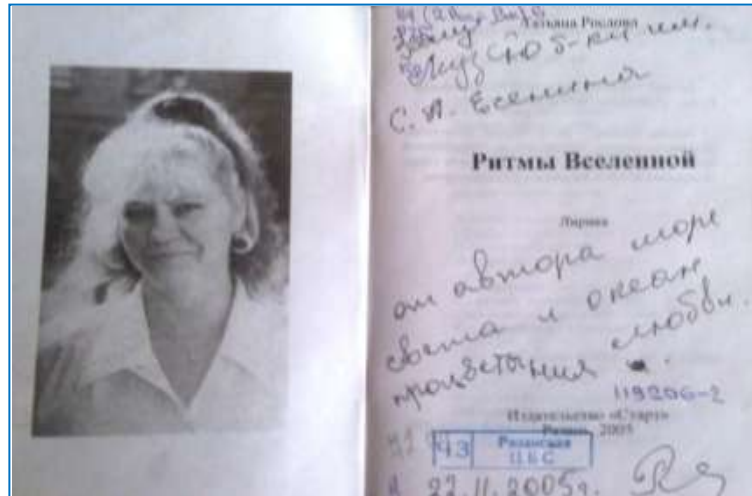 Татьяна Рослова
б-ки им.
С. А. Есенина
Ритмы Вселенной
Лирика
от автора море
света и океан
процветания любви.
119206-2
Издательство «Старт»
Рязань, 2005
ЧЗ Рязанская
ЦБС
22.11.2005г.